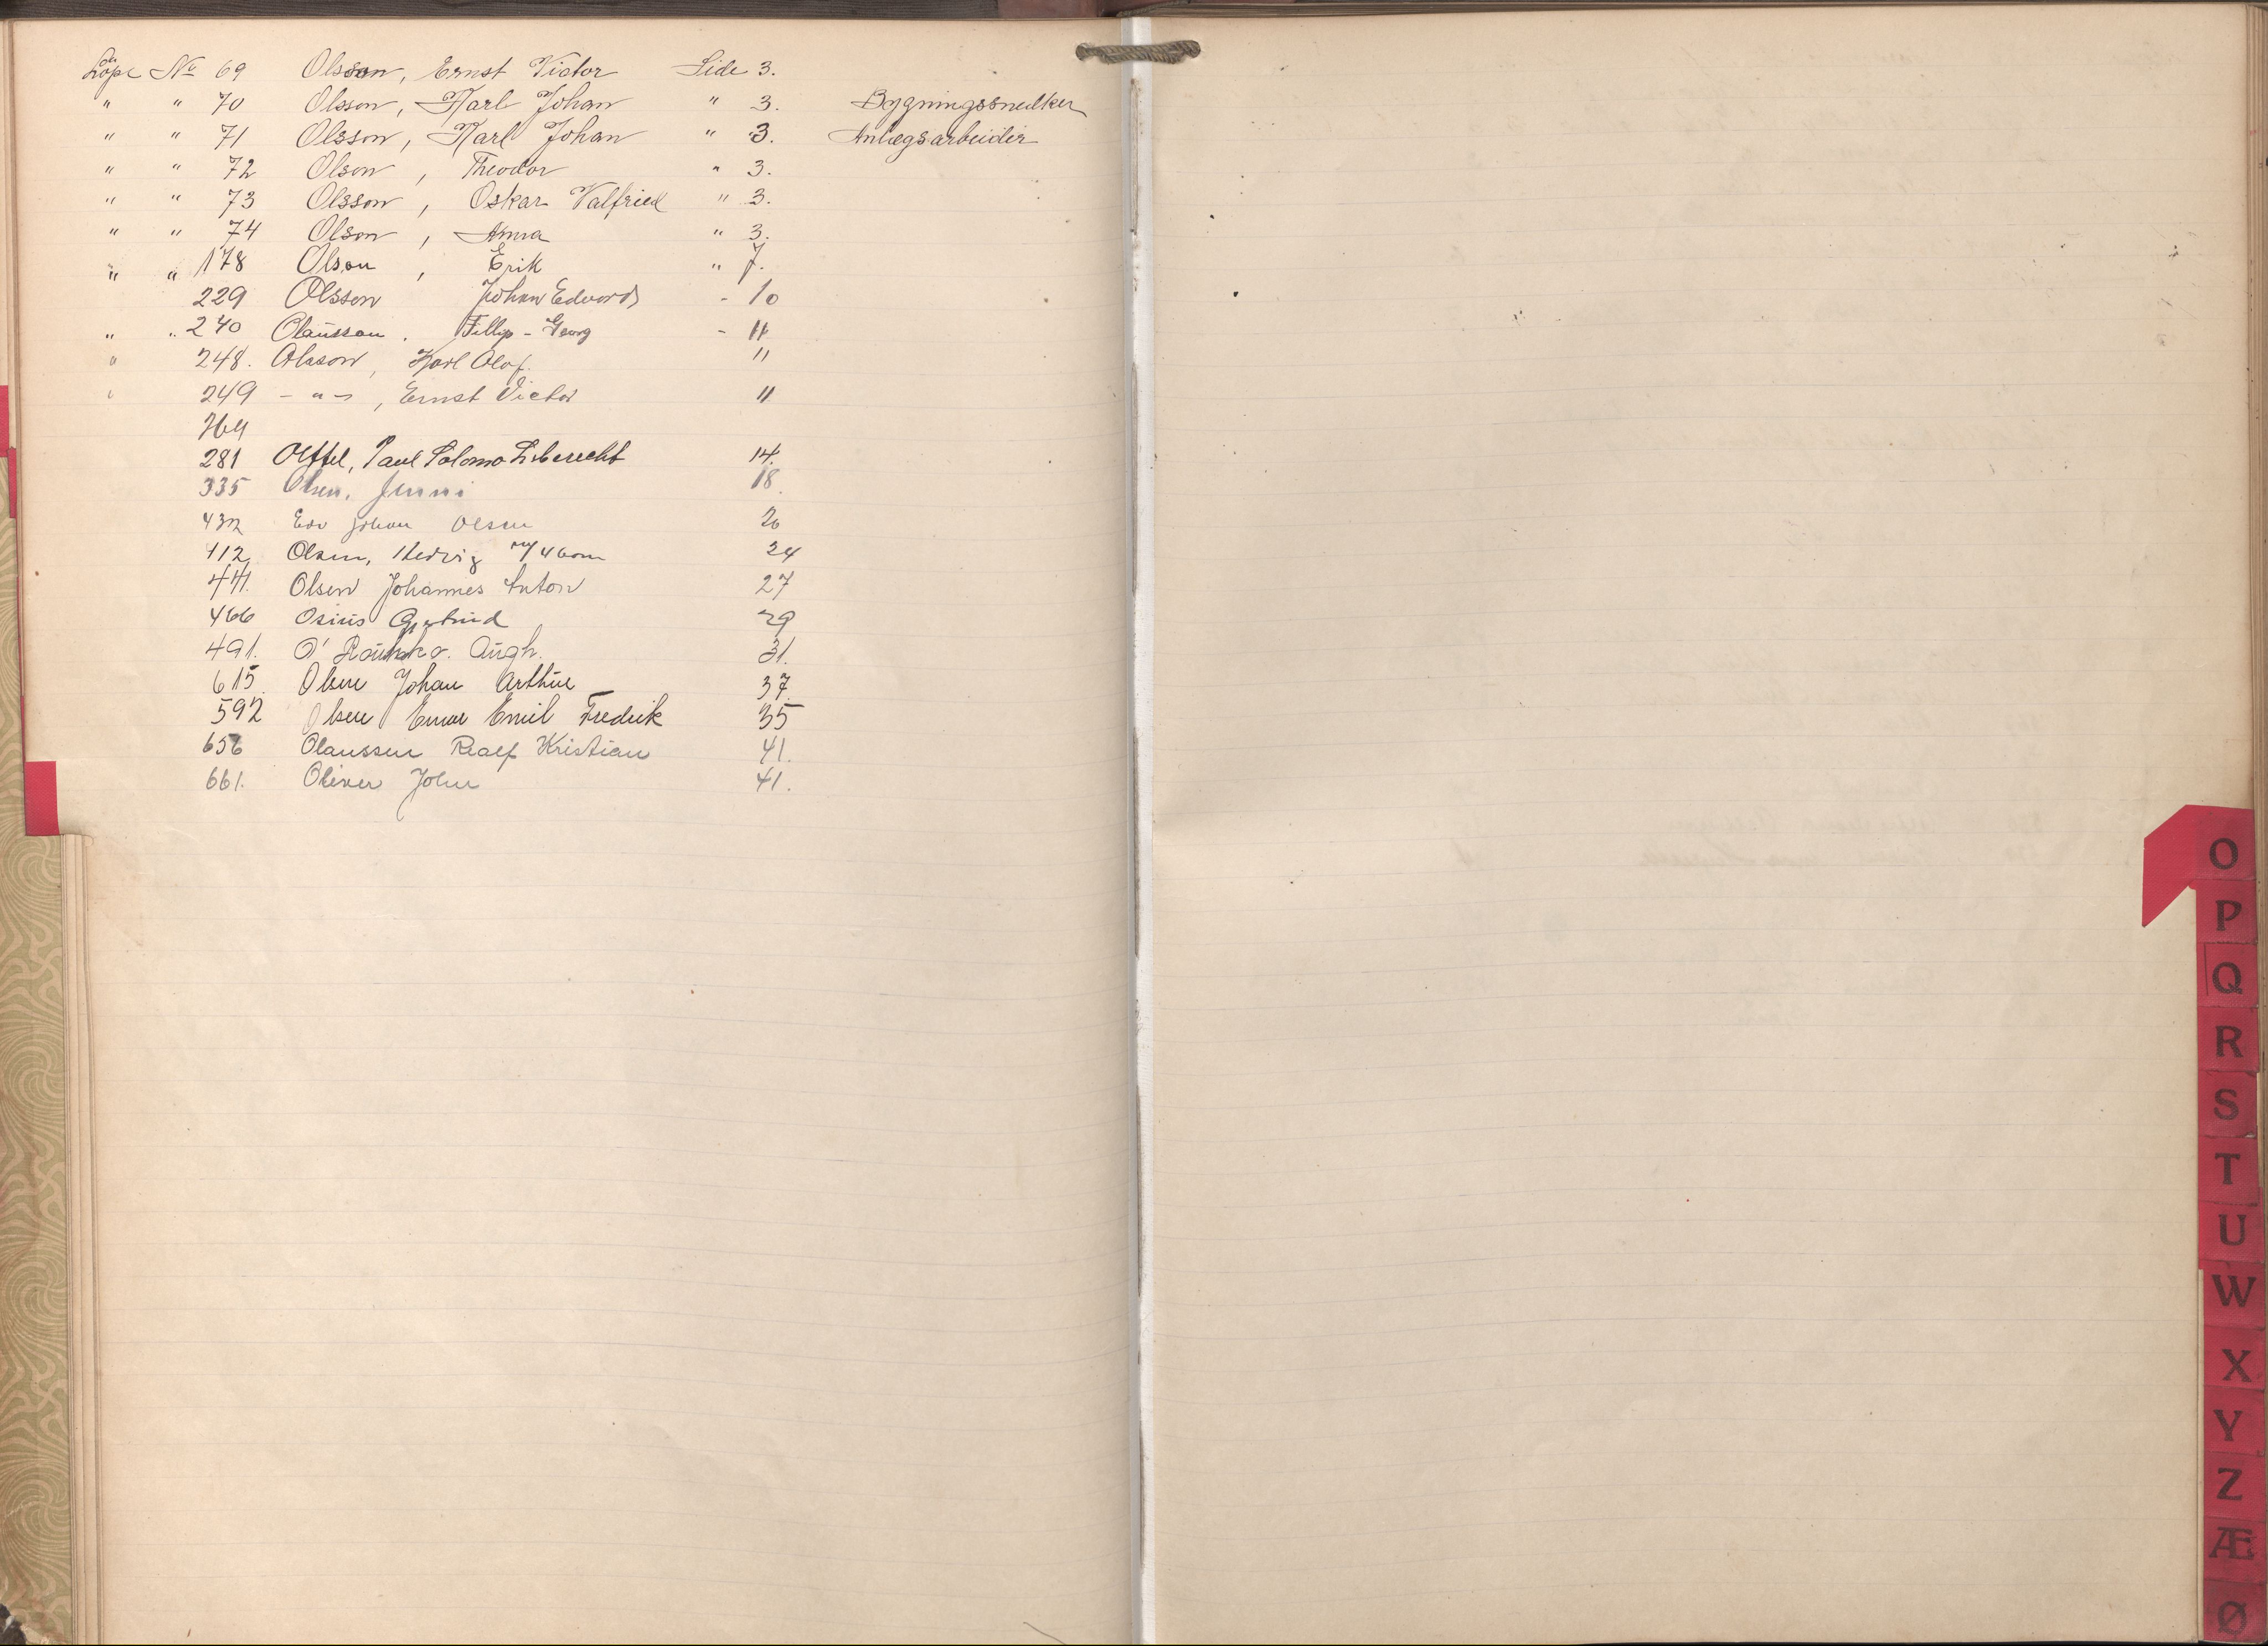 Løpe No 69 Olsson, Ernst Victor Side 3.
" " 70 Olsson, Karl Johan " 3. Bygningssnedker
" " 71 Olsson, Karl Johan " 3. Anlægsarbeider
" " 72 Olson, Theodor " 3.
" " 73 Olsson, Oskar Valfried " 3.
" " 74 Olson, Anna " 3.
" " 178 Olson, Erik " 7.
229 Olsson Johan Edvard - 10
" " 240 Olausson. Fillip - Georg - 11
" 248. Olsson, Karl Olof. 11
" 249 - " - , Ernst Victor 11
264
281 Olffel, Paul Salomo Liberecht 14.
335 Olsen, Jenni 18.
432 Edv Johan Olsen 20
412 Olsen, Hedvig 24
441. Olsen Johannes Anton 27
466 Osius Gertrud 29
491. O' Hugh. 31.
615. Olsen Johan Arthur 37.
592 Olsen Einar Emil Fredrik 35
656 Olaussen Rialf Kristian 41.
661. Oliver John 41.
O
P
Q
R
S
T
U
W
X
Y
Z
Æ
Ø